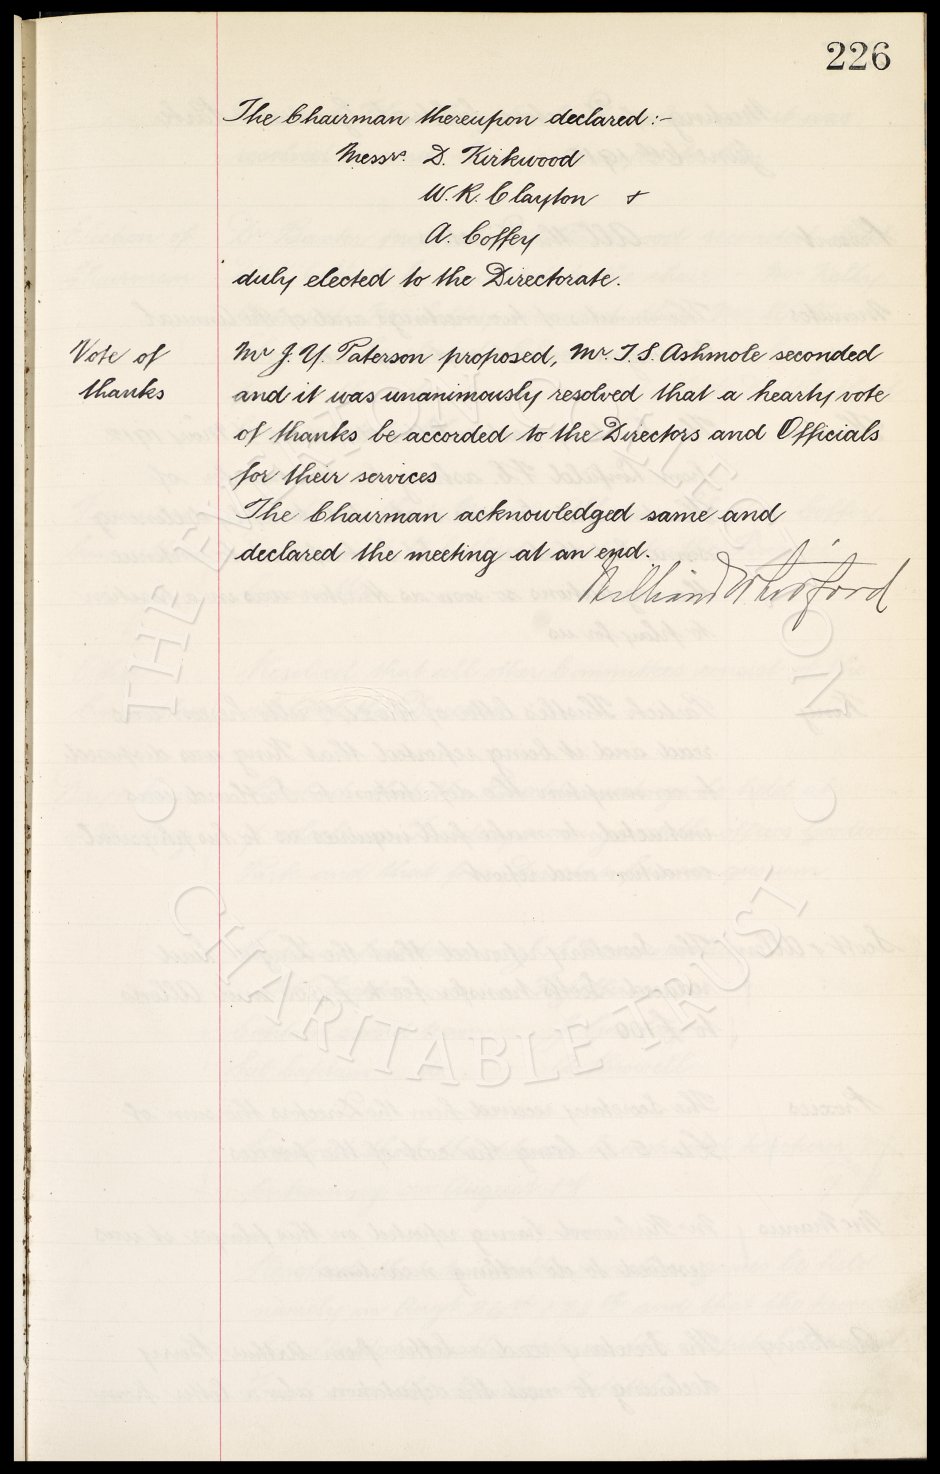 226
The Chairman thereupon declared :-
Messrs. D. Kirkwood
W. R. Clayton &
A. Coffey
duly elected to the Directorate.
Vote of
thanks
Mr J. Y. Paterson proposed, Mr. T. S. Ashmole seconded
and it was unanimously resolved that a hearty vote
of thanks be accorded to the Directors and Officials
for their services
The Chairman acknowledged same and
declared the meeting at an end.
William Whitford
THE EVERTON COLLECTION
CHARITABLE TRUST